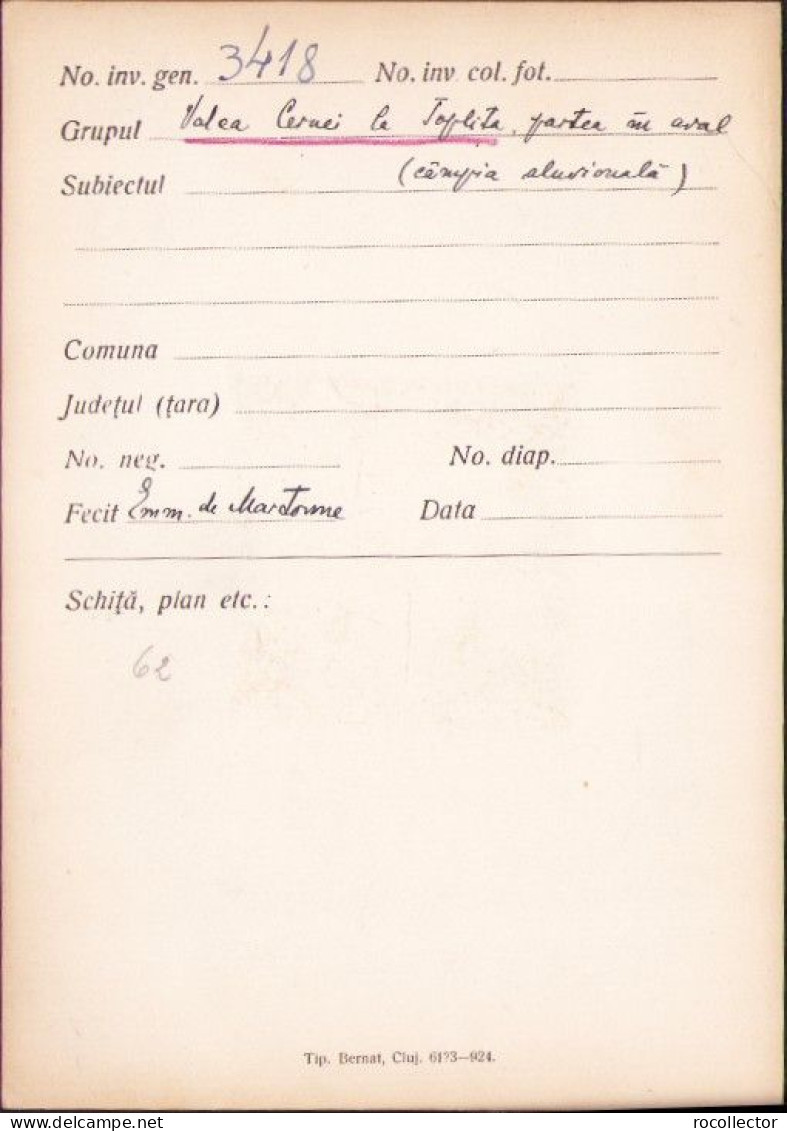 No. inv. gen. 3418 No. inv col. fot.
Grupul Valea Cernei la Toplița, partea în aval
Subiectul (câmpia aluvională)
Comuna
Județul (țara)
No. neg. No. diap.
Fecit Emm. de Martonne Data
Schiță, plan etc.:
62
Tip. Bernat, Cluj. 6173—924.
delcampe.net
rocollector